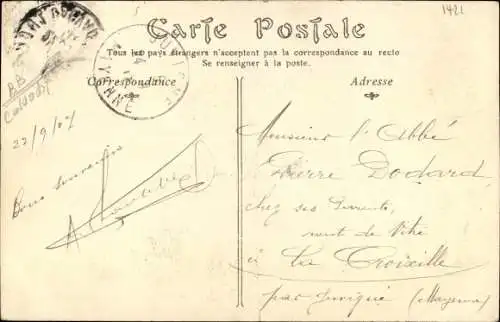 1421
Carte Postale
Tous les pays étrangers n'acceptent pas la correspondance au recto
Se renseigner à la poste.
Correspondance
Adresse
MAYENNE
BB
Calvados
23/9/07
Bons souvenirs
Monsieur l'Abbé
Pierre Dodard
chez ses Parents
route de Vitré
à La Croixille
par Juvigné (Mayenne)